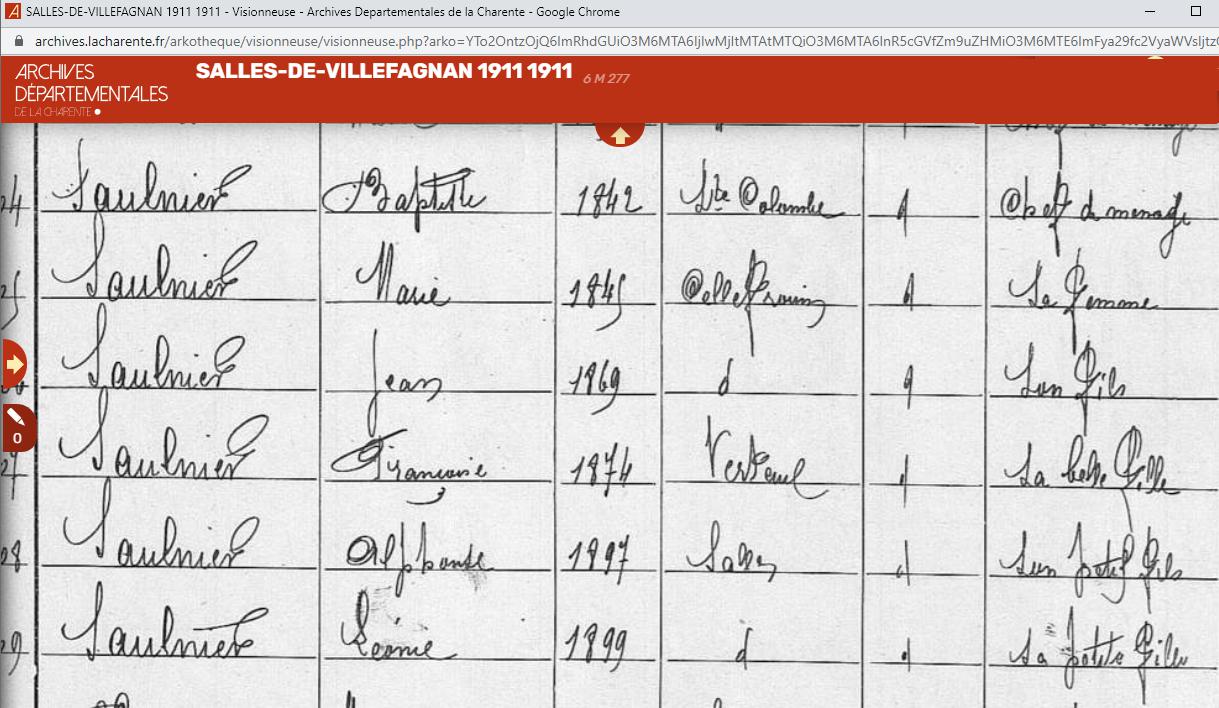 SALLES-DE-VILLEFAGNAN 1911 1911 - Visionneuse - Archives Departementales de la Charente - Google Chrome
archives.lacharente.fr/arkotheque/visionneuse/visionneuse.php?arko=
ARCHIVES
DÉPARTEMENTALES
DE LA CHARENTE
SALLES-DE-VILLEFAGNAN 1911 1911 6 M 277
24 Saulnier Baptiste 1842 Ste Colombe d Chef de menage
25 Saulnier Marie 1845 Cellefrouin d Sa femme
Saulnier Jean 1869 d d Son fils
27 Saulnier Francoise 1874 Verteuil d Sa belle fille
28 Saulnier Alphonse 1897 Salles d Son petit fils
29 Saulnier Léonie 1899 d d Sa petite fille
0